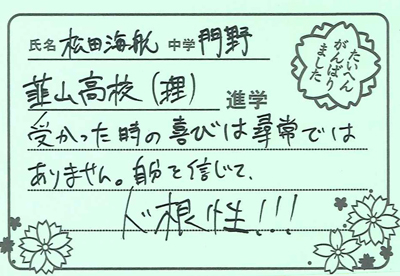 氏名 松田海航 中学 門野
韮山高校(理) 進学
たいへん
がんばり
ました
受かった時の喜びは尋常では
ありません。自分を信じて、
ド根性!!!